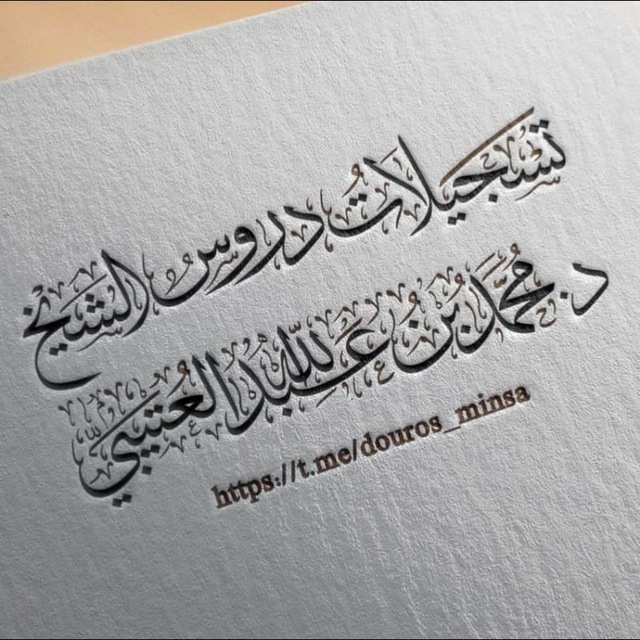 تسجيلات دروس الشيخ
د. محمد بن عبدالله العتيبي
https://t.me/douros_minsa